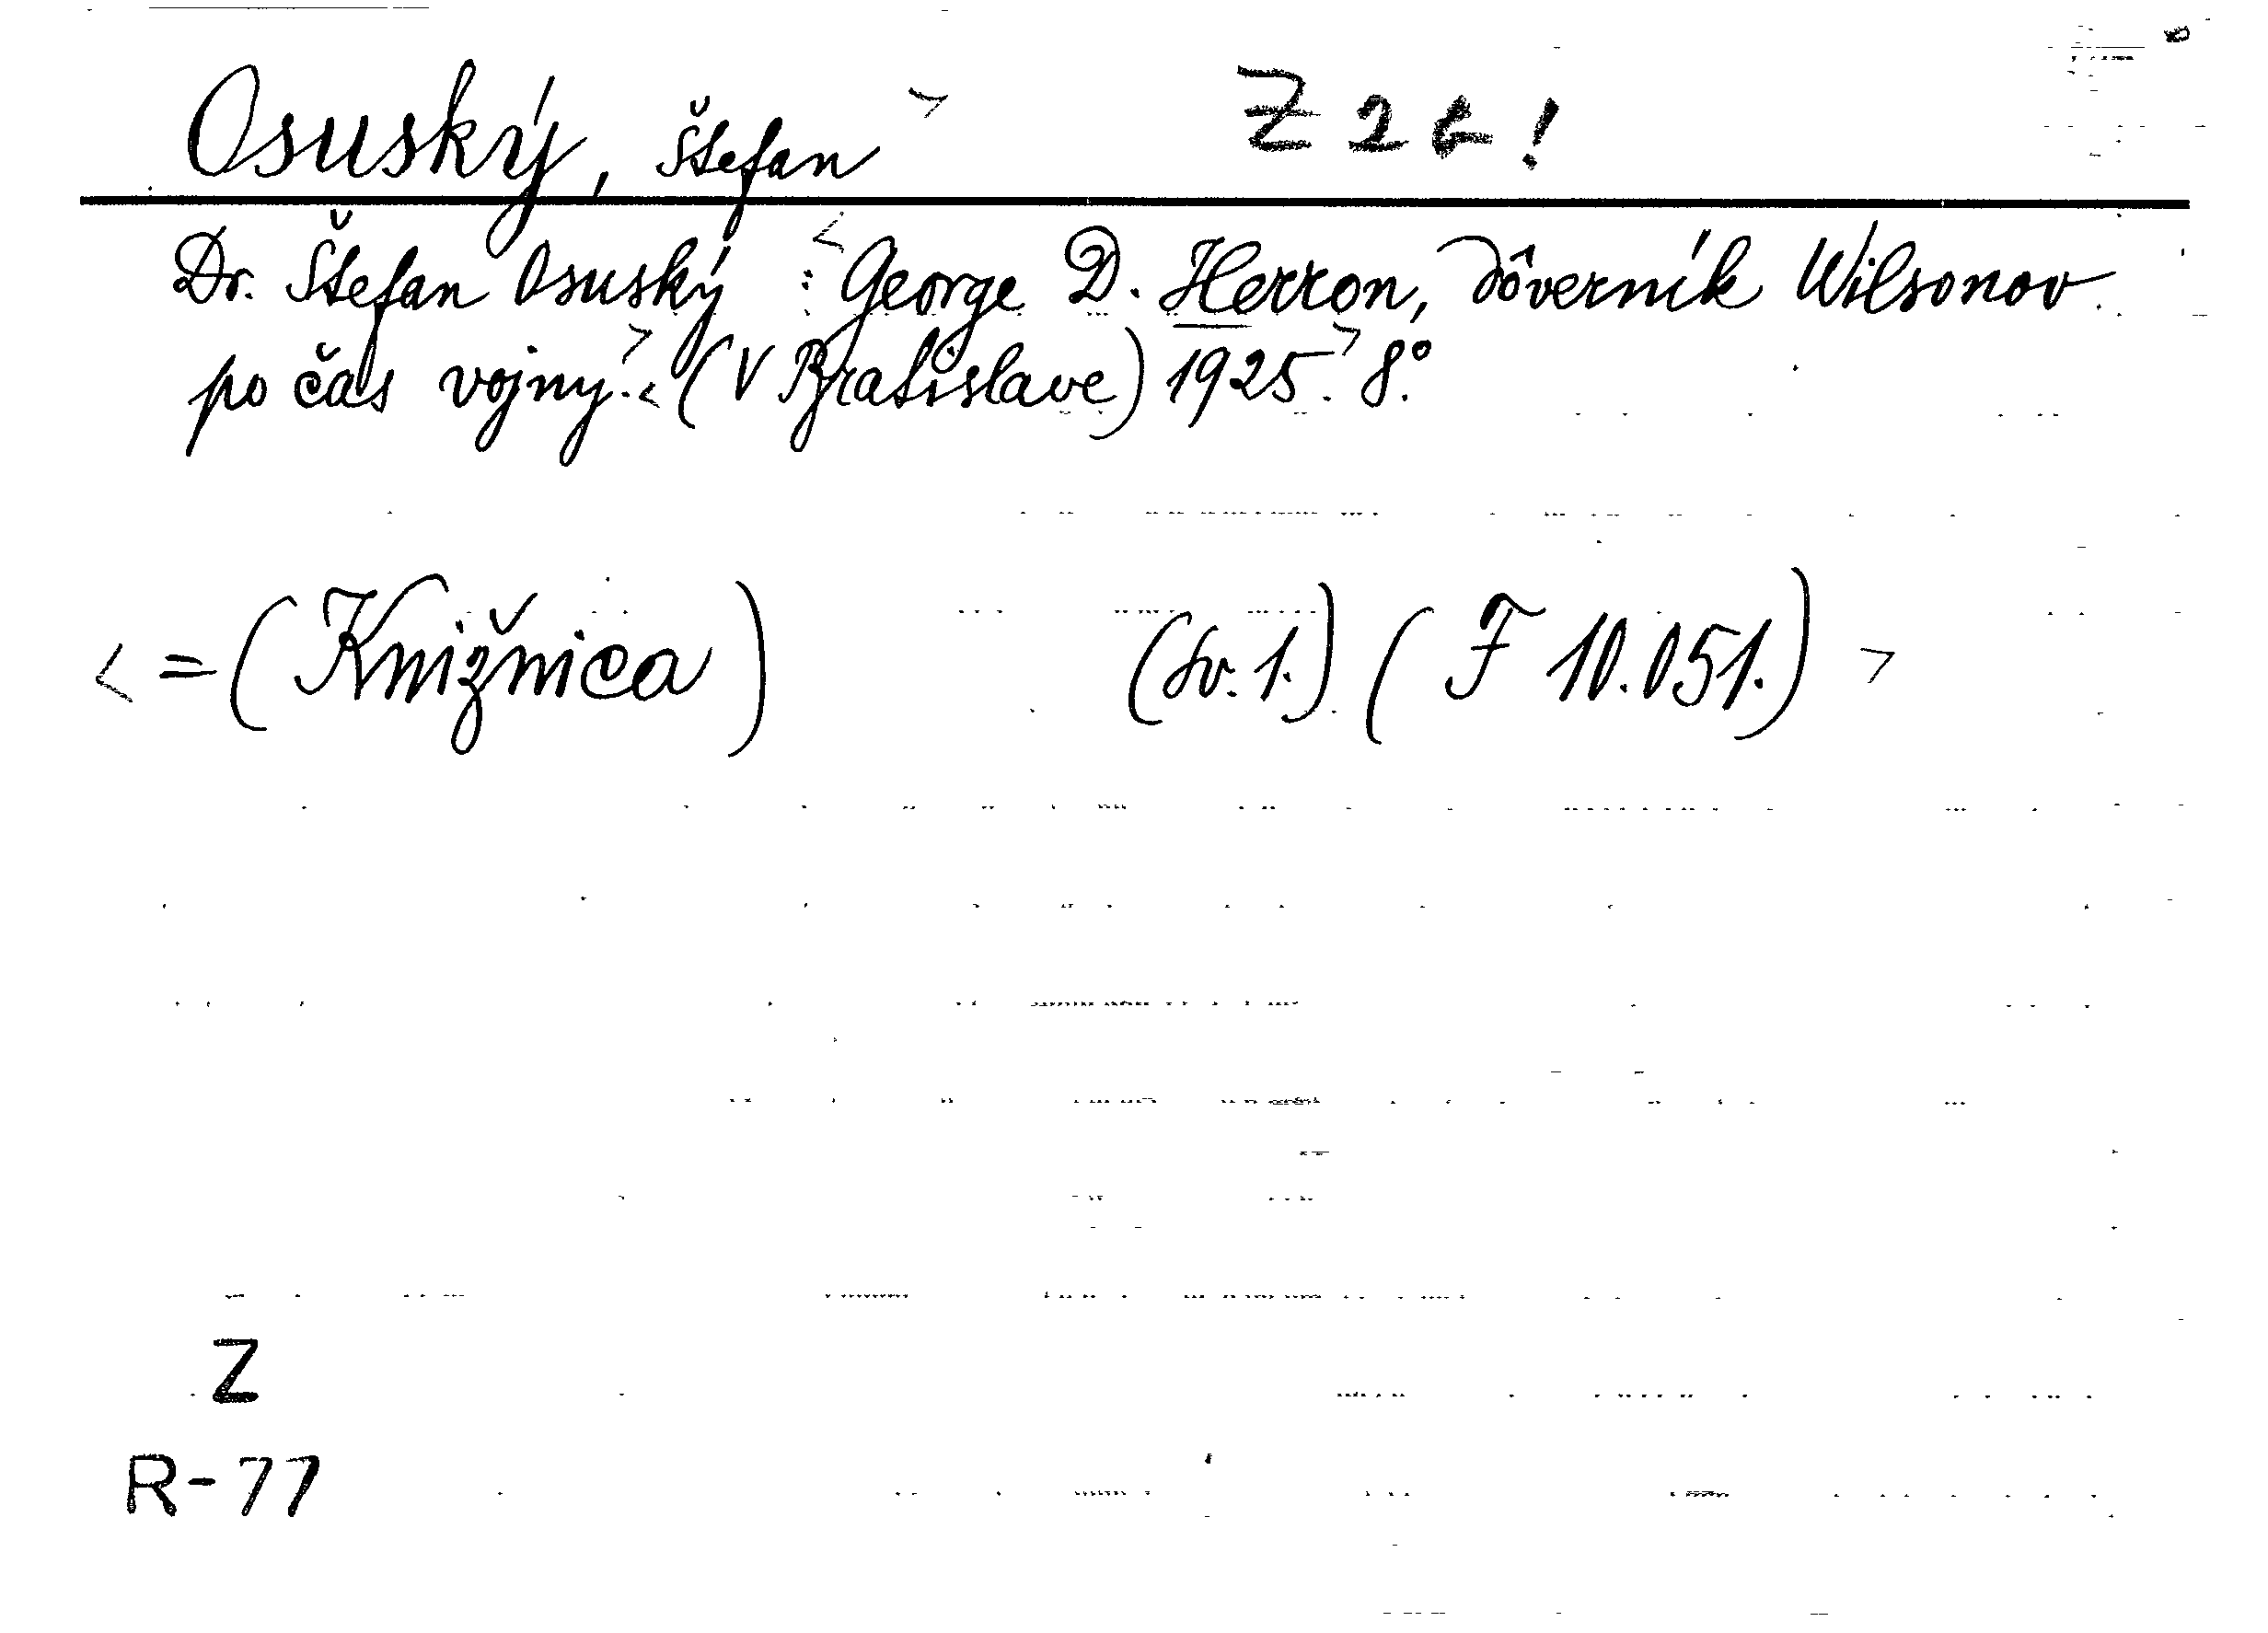 Osuský, Štefan > Z 2 t !
Dr. Štefan Osuský : < George D. Herron, dôverník Wilsonov
po čas vojny. > < (V Bratislave) 1925. > 8°.
< = (Knižnica) (sv. 1.) ( F 10.051.) >
Z
R-77